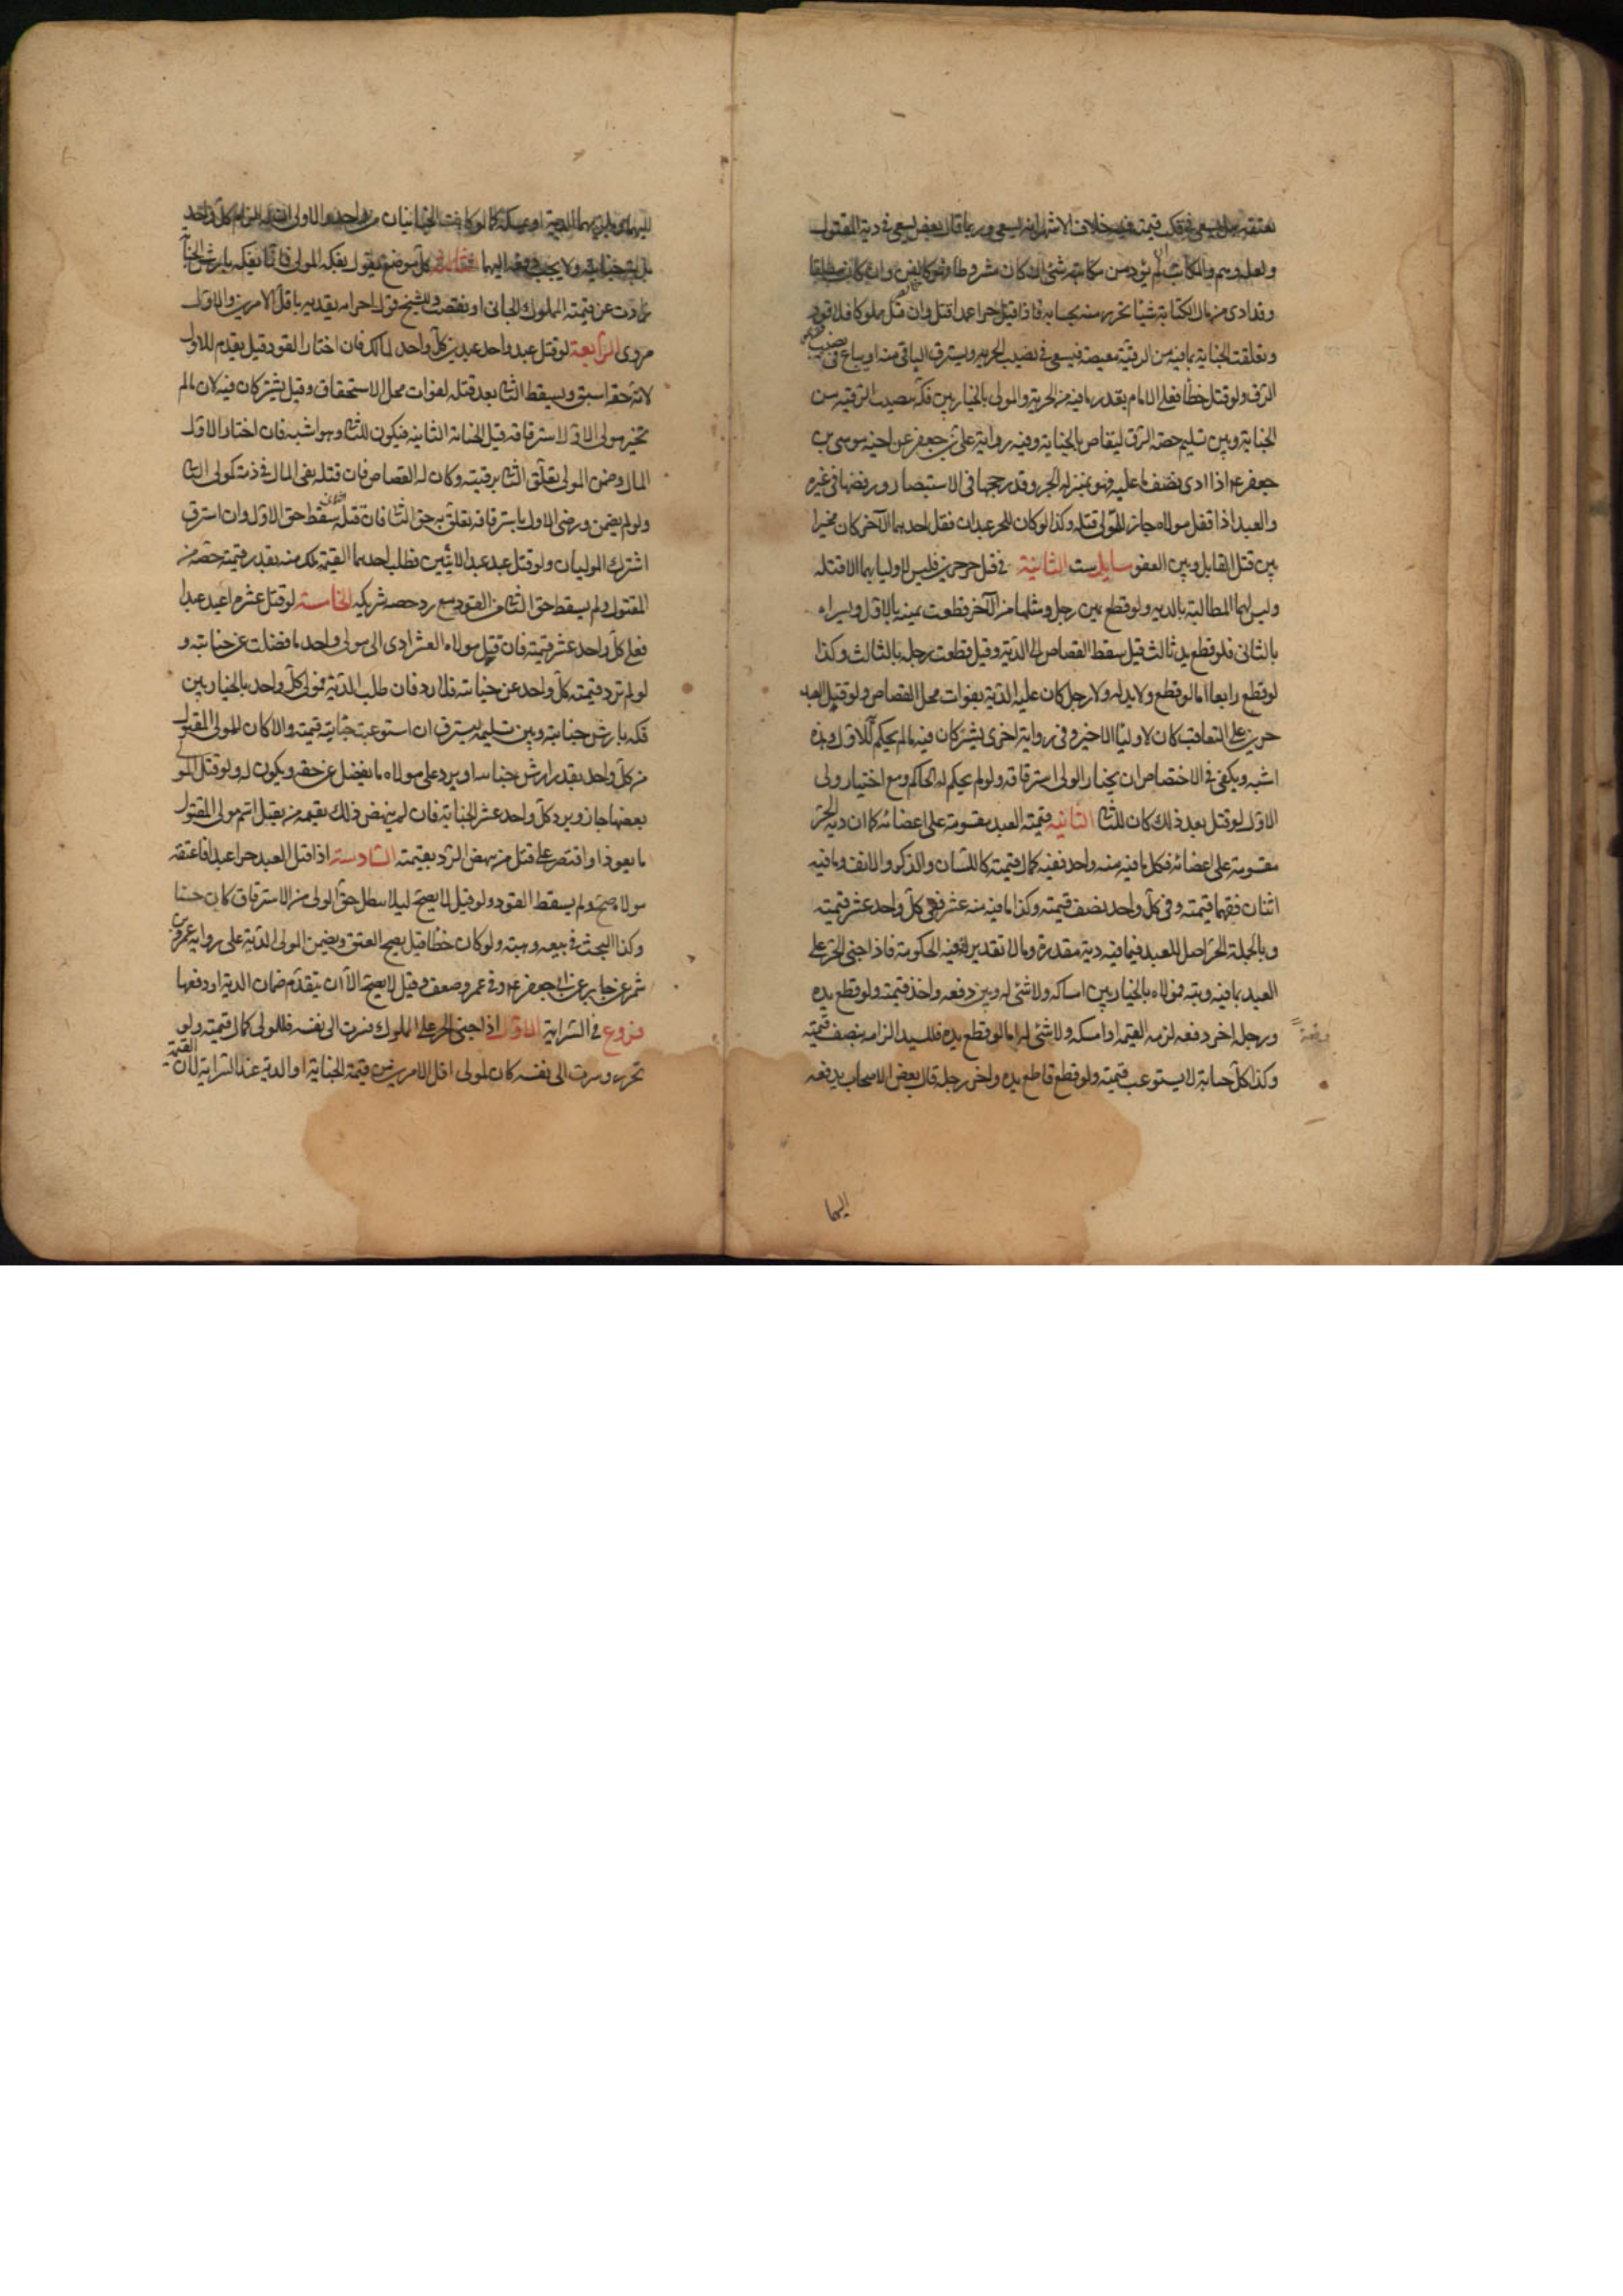 بعتقه وهل يسعى في فك قيمته فيه خلاف الاشهر انه يسعى وربما قال بعض يسعى في دية المقتول
ولعله وهم والمكاتب ان لم يؤد من مكاتبته شئ او كان مشروطا فهو كالقن وان كان مطلقا
وقد ادى من مال الكتابة شيئا تحرر منه بحسابه فاذا قتل حرا عمدا قتل وان قتل مملوكا فلا قود
وتعلقت الجناية بما فيه من الرقية مبعضة فيسعى في نصيب الحرية ويسترق الباقي منه او يباع في نصيب
الرق ولو قتل خطأ فعلى الامام بقدر ما فيه من الحرية والمولى بالخيار بين فك نصيب الرقية من
الجناية وبين تسليم حصة الرق ليقاص بالجناية وفيه رواية علي بن جعفر عن اخيه موسى بن
جعفر ع اذا ادى نصف ما عليه فهو بمنزلة الحر وقد رجحها في الاستبصار ورفضها في غيره
والعبد اذا قتل مولاه جاز للمولى قتله وكذا لو كان للحر عبدان فقتل احدهما الآخر كان مخيرا
بين قتل القاتل وبين العفو سايل ست الثانية في قتل حر حرين فليس لاوليائهما الا قتله
وليس لهما المطالبة بالدية ولو قطع يمين رجل ومثلها من الآخر قطعت يمينه بالاول ويسراه
بالثاني فلو قطع يد ثالث قيل سقط القصاص الى الدية وقيل قطعت رجله بالثالث وكذا
لو قطع رابعا اما لو قطع ولا يد له ولا رجل كان عليه الدية بفوات محل القصاص ولو قتل العبد
حرين على التعاقب كان لاوليا الاخير وفي رواية اخرى يشتركان فيه ما لم يحكم للاول وهذه
اشبه ويكفي في الاختصاص ان يختار الولى استرقاقه ولو لم يحكم له الحاكم ومع اختيار ولى
الاول لو قتل بعد ذلك كان للثاني الثانية قيمة العبد مقسومة على اعضائه كما ان دية الحر
مقسومة على اعضائه فكل ما فيه منه واحد ففيه كمال قيمته كاللسان والذكر والانف وما فيه
اثنان ففيهما قيمته وفي كل واحد نصف قيمته وكذا ما فيه منه عشر ففي كل واحد عشر قيمته
وبالجملة الحر اصل للعبد فيما فيه دية مقدرة وما لا تقدير له ففيه الحكومة فاذا جنى الحر على
العبد بما فيه ديته فمولاه بالخيار بين امساكه ولا شئ له وبين دفعه واخذ قيمته ولو قطع يده
ورجله اخر دفعه لزمه القيمة او امسكه ولا شئ له اما لو قطع يده فللسيد الزامه بنصف قيمته
وكذا كل جناية لا يستوعب قيمته ولو قطع قاطع يده واخر رجله قال بعض الاصحاب يدفعه
اليهما
اليهما ويلزمهما الدية او يمسكه كما لو كانت الجنايتان من واحد والاولى ان له الزام كل واحد
منهما بدية جنايته ولا يجب دفعه اليهما الثالثة كل موضع نقول يفكه المولى فانما يفكه بارش الجناية
زادت عن قيمة المملوك الجاني او نقصت وللشيخ قول اخر انه يفديه باقل الامرين والاول
مروى الرابعة لو قتل عبد واحد عبدين كل واحد لمالك فان اختار القود قيل يقدم للاول
لانه حقه اسبق ويسقط الثاني بعد قتله لفوات محل الاستحقاق وقيل يشتركان فيه لان ما لم
تخير مولى الاول لاسترقاقه قبل الجناية الثانية فيكون للثاني وهو اشبه فان اختار الاول
المال وضمن المولى تعلق الثاني برقبته وكان له القصاص فان قتله بقى المال في ذمة مولى الثاني
ولو لم يضمن ورضى الاول باسترقاقه تعلق به حق الثاني فان قتله سقط حق الاول وان استرق
اشترك الموليان ولو قتل عبد عبد الاثنين فطلب احدهما القيمة ملك منه بقدر قيمة حصته من
المقتول ولم يسقط حق الثاني من القود مع رد حصه شريكه الخامسة لو قتل عشرة اعبد عبدا
فعلى كل واحد عشر قيمته فان قتل مولاه العشر ادى الى مولى كل واحد ما فضلت عن جنايته و
لو لم تزد قيمته كل واحد عن جنايته فلا رد فان طلب الدية فمولى كل واحد بالخيار بين
فكه بارش جنايته وبين تسليمه ليسترق ان استوعبت جنايته قيمته والا كان لمولى المقتول
من كل واحد بقدر ارش جنايته او يرد على مولاه ما يفضل عن حقه ويكون له ولو قتل المولى
بعضها جاز ويرد كل واحد عشر الجناية فان لم ينهض ذلك بقيمة من يقتل اتم مولى المقتول
ما يعوز او اقتصر على قتل من ينهض الرد بقيمته السادسة اذا قتل العبد حرا عمدا فاعتقه
مولاه صح ولم يسقط القود ولو قيل لا يصح ليلا يبطل حق الولى من الاسترقاق كان حسنا
وكذا البحث في بيعه وهبته ولو كان خطأ قيل يصح العتق ويضمن المولى الدية على رواية عمرو بن
شمر عن جابر عن ابي جعفر ع وفي عمرو ضعف وقيل لا يصح الا ان يتقدم ضمان الدية او دفعها
فروع في السراية الاول اذا جنى الحر على المملوك فسرت الى نفسه فللمولى كمال قيمته ولو
تحرر وسرت الى نفسه كان للمولى اقل الامرين من قيمة الجناية او الدية عند السراية لان القيمة